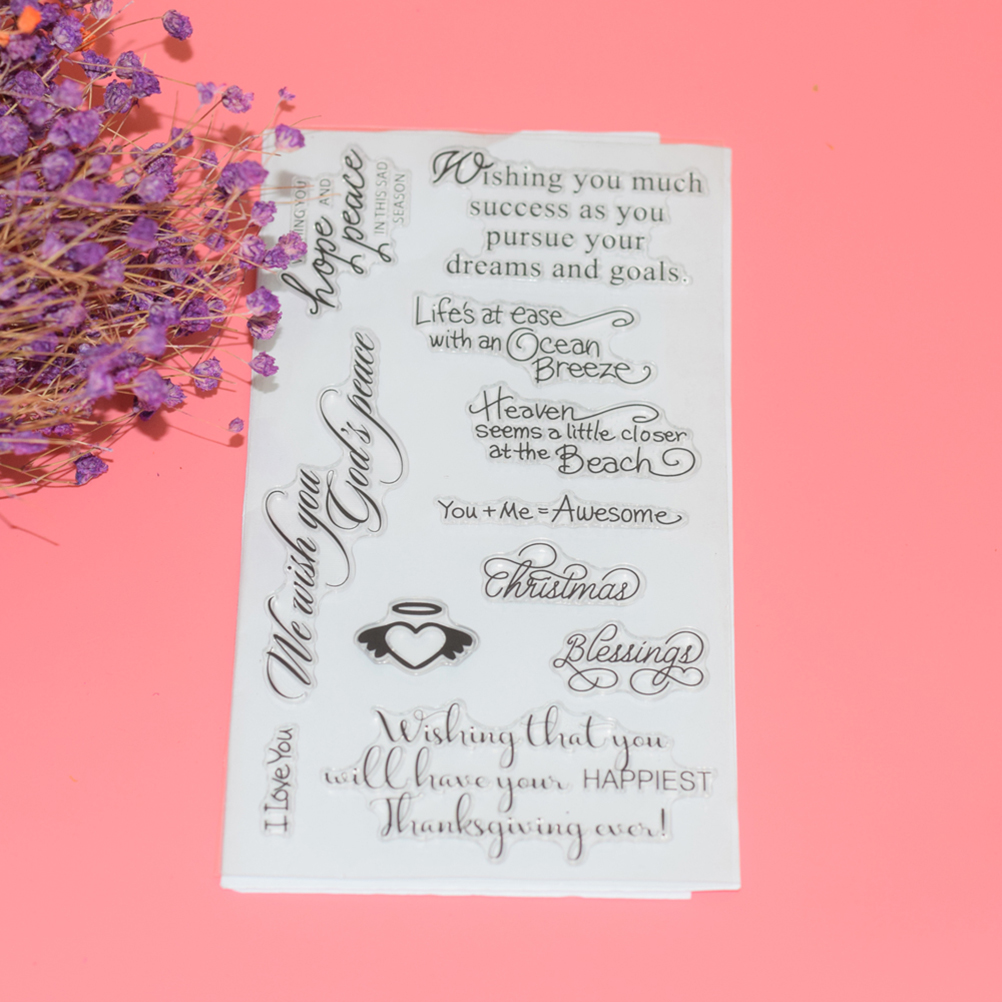 ING YOU
hope AND
peace
IN THIS SAD
SEASON
Wishing you much
success as you
pursue your
dreams and goals.
Life's at ease
with an Ocean
Breeze
Heaven
seems a little closer
at the Beach
You + Me = Awesome
We wish you
God's peace
Christmas
Blessings
I Love You
Wishing that you
will have your HAPPIEST
Thanksgiving ever!